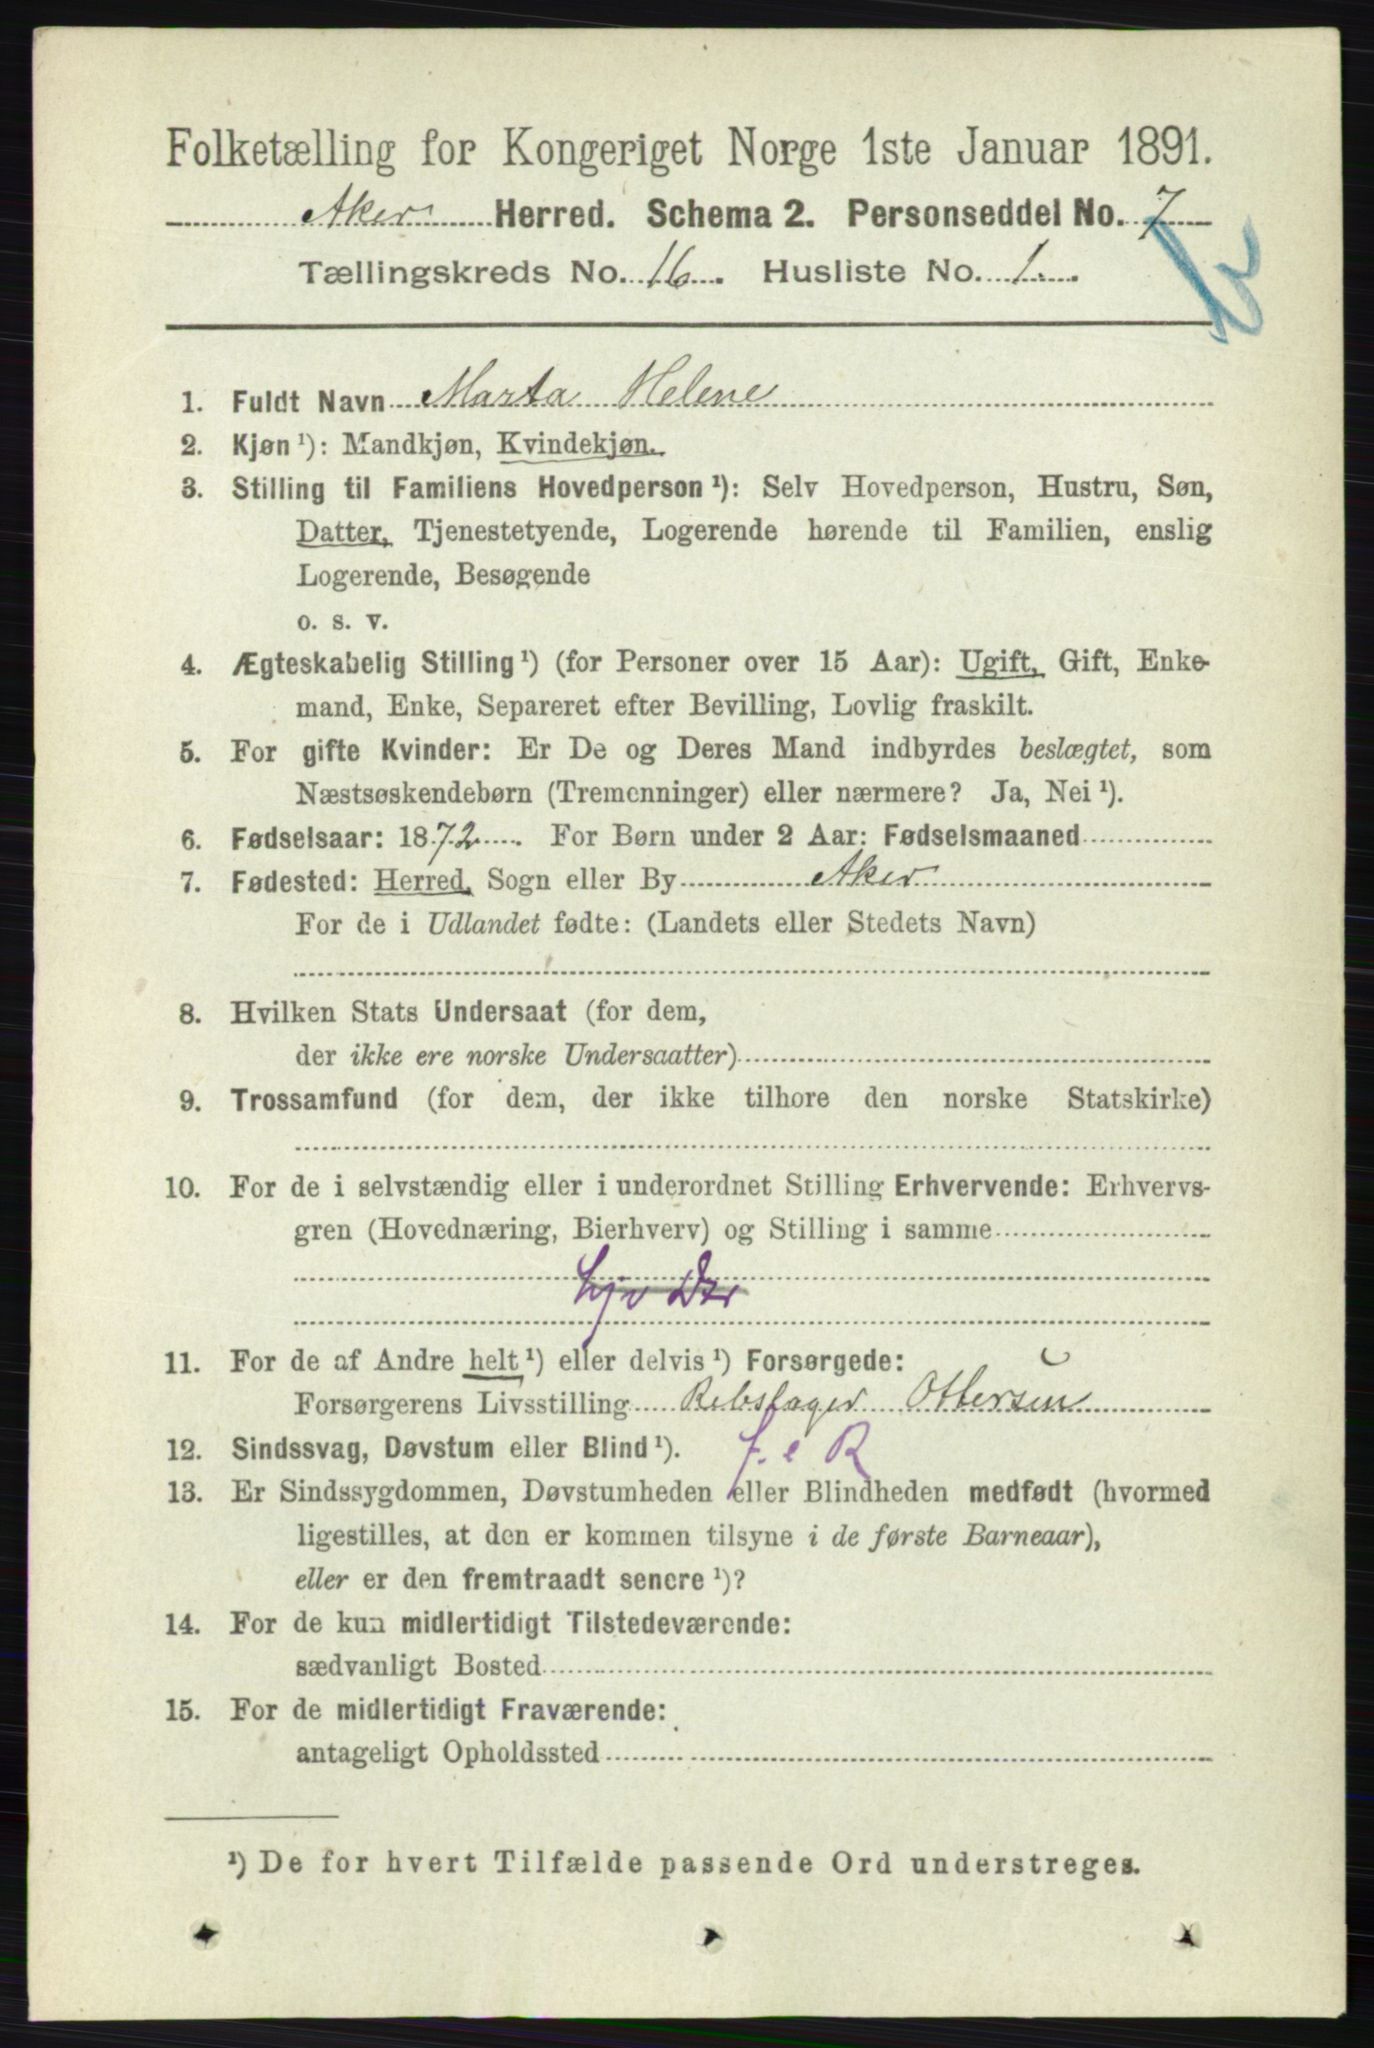 Folketælling for Kongeriget Norge 1ste Januar 1891.
Aker Herred. Schema 2. Personseddel No. 7
Tællingskreds No. 16. Husliste No. 1.
1. Fuldt Navn Marta Helene
2. Kjøn ¹): Mandkjøn, Kvindekjøn.
3. Stilling til Familiens Hovedperson ¹): Selv Hovedperson, Hustru, Søn,
Datter, Tjenestetyende, Logerende hørende til Familien, enslig
Logerende, Besøgende
o. s. v.
4. Ægteskabelig Stilling ¹) (for Personer over 15 Aar): Ugift, Gift, Enke-
mand, Enke, Separeret efter Bevilling, Lovlig fraskilt.
5. For gifte Kvinder: Er De og Deres Mand indbyrdes beslægtet, som
Næstsøskendebørn (Tremenninger) eller nærmere? Ja, Nei ¹).
6. Fødselsaar: 1872. For Børn under 2 Aar: Fødselsmaaned
7. Fødested: Herred, Sogn eller By Aker
For de i Udlandet fødte: (Landets eller Stedets Navn)
8. Hvilken Stats Undersaat (for dem,
der ikke ere norske Undersaatter)
9. Trossamfund (for dem, der ikke tilhore den norske Statskirke)
10. For de i selvstændig eller i underordnet Stilling Erhvervende: Erhvervs-
gren (Hovednæring, Bierhverv) og Stilling i samme
11. For de af Andre helt ¹) eller delvis ¹) Forsørgede:
Forsørgerens Livsstilling Rebslager Ottersen
12. Sindssvag, Døvstum eller Blind ¹). f. e R
13. Er Sindssygdommen, Døvstumheden eller Blindheden medfødt (hvormed
ligestilles, at den er kommen tilsyne i de første Barneaar),
eller er den fremtraadt senere ¹)?
14. For de kun midlertidigt Tilstedeværende:
sædvanligt Bosted
15. For de midlertidigt Fraværende:
antageligt Opholdssted
¹) De for hvert Tilfælde passende Ord understreges.